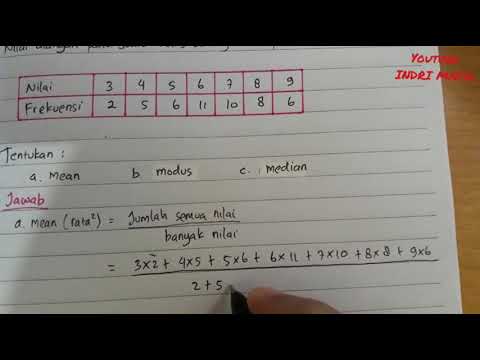 Nilai ulangan
YOUTUBE
INDRI
Nilai 3 4 5 6 7 8 9
Frekuensi 2 5 6 11 10 8 6
Tentukan :
a. Mean b. modus c. median
Jawab
a. Mean (rata²) = Jumlah semua nilai
banyak nilai
= 3x2 + 4x5 + 5x6 + 6x11 + 7x10 + 8x8 + 9x6
2 + 5